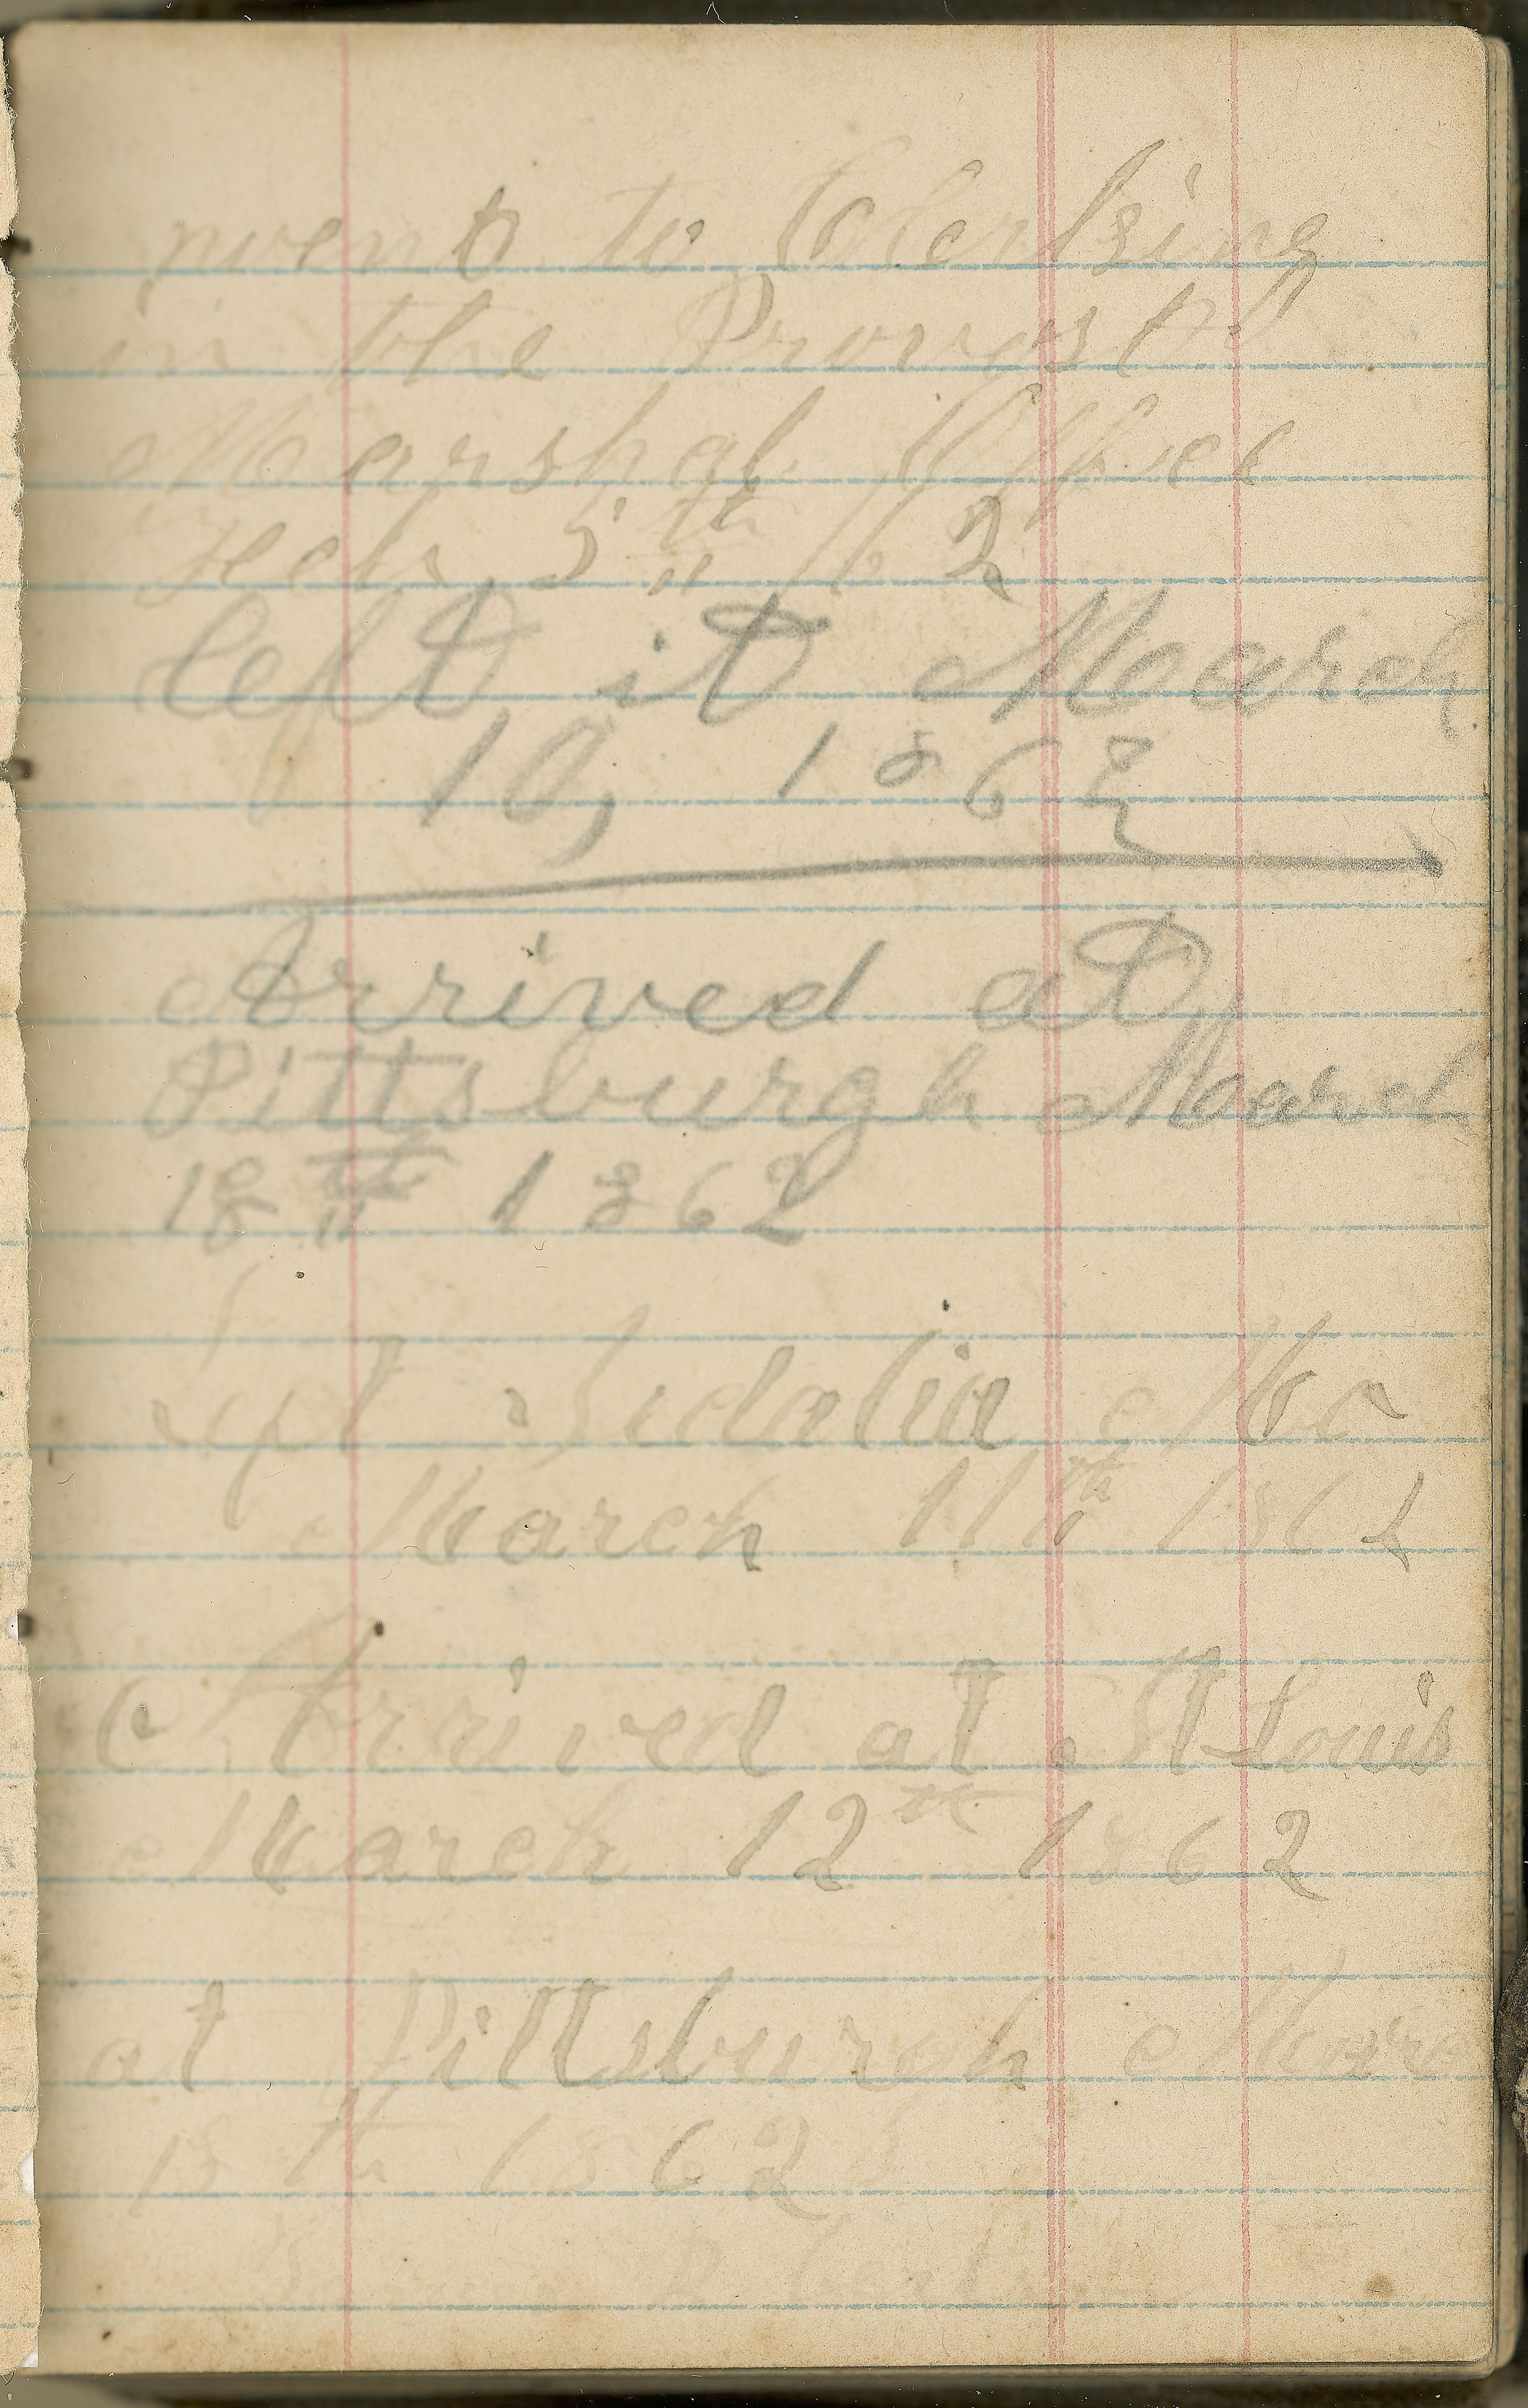 went to Clerking
in the Provost
Marshal Office
Feb 5th 62
left it March
10, 1862
Arrived at
Pittsburgh March
18th 1862
Left Sedalia Mo
March 11th 1862
Arrived at St Louis
March 12th 1862
at Pittsburgh Marc
18th 1862